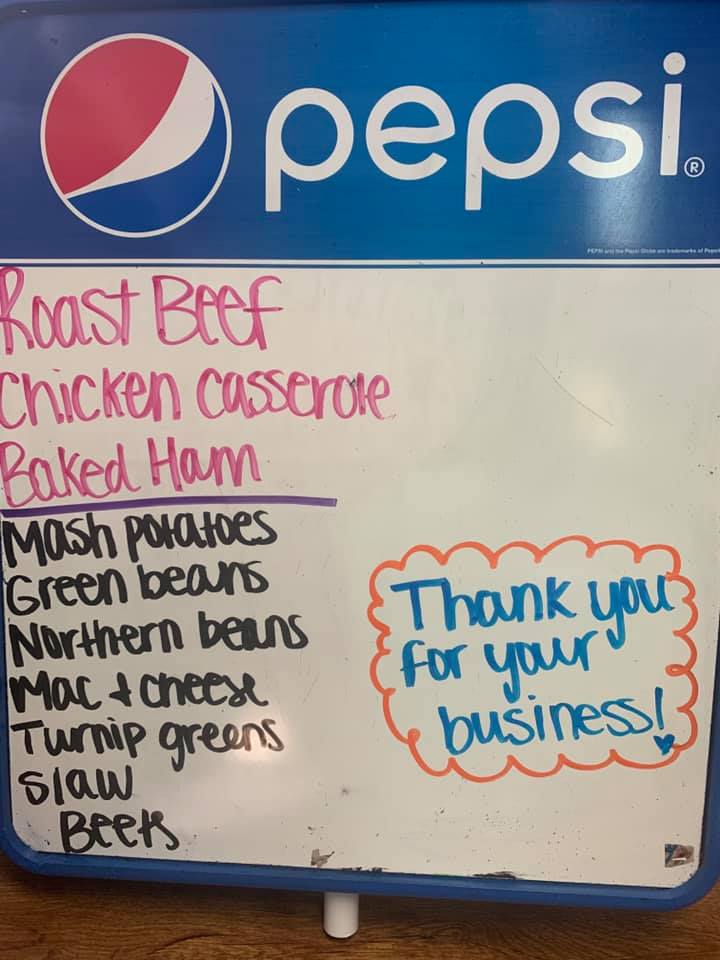 pepsi®
PEPSI and the Pepsi Globe are trademarks of
Roast Beef
Chicken casserole
Baked Ham
Mash potatoes
Green beans
Northern beans
Mac + cheese
Turnip greens
Slaw
Beets
Thank you
for your
business!